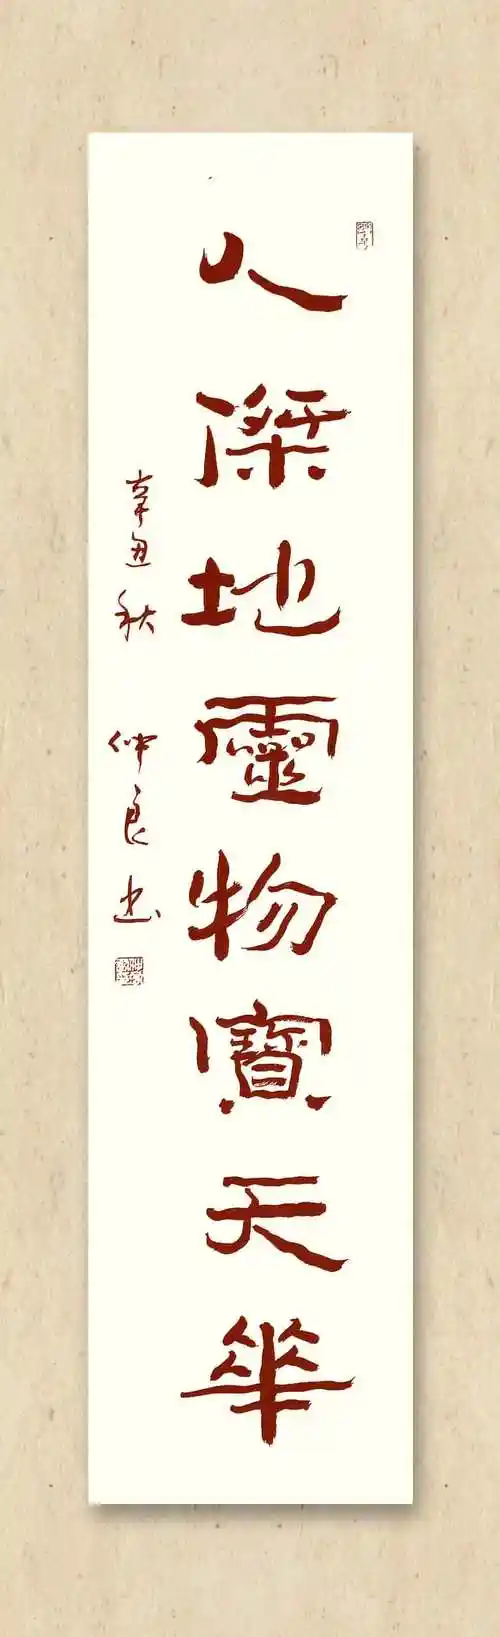 人傑地靈物寶天華
辛丑秋 仲良书